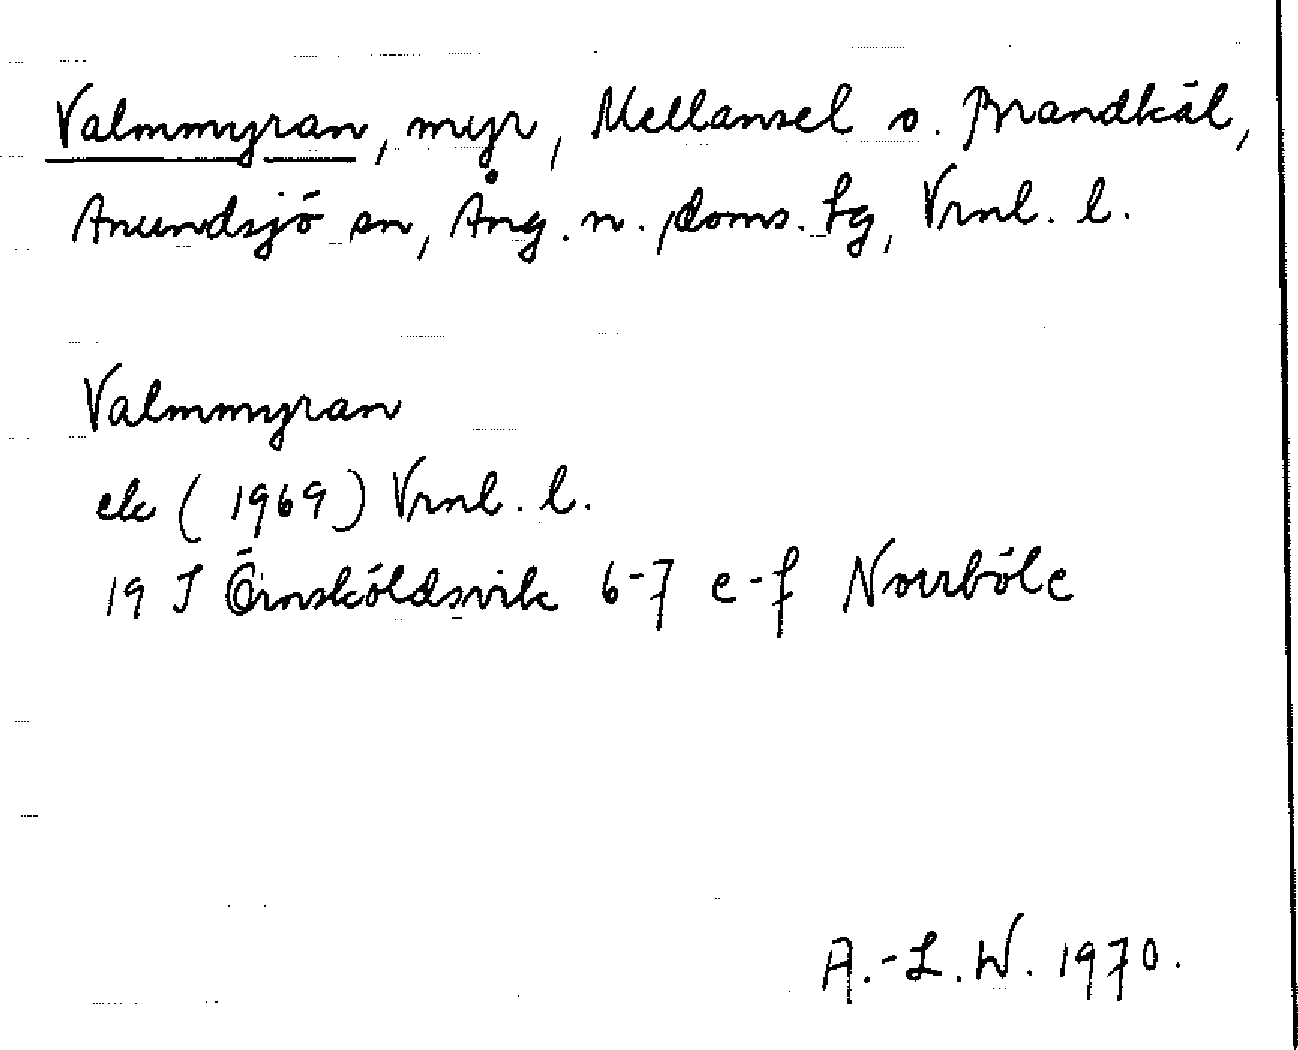 Valmmyran, myr, Mellansel o. Brandkäl,
Anundsjö sn, Ång. n. doms. Lg, Vrnl. l.
Valmmyran
ek (1969) Vrnl. l.
19 J Örnsköldsvik 6-7 e-f Norrböle
A.-L.W. 1970.